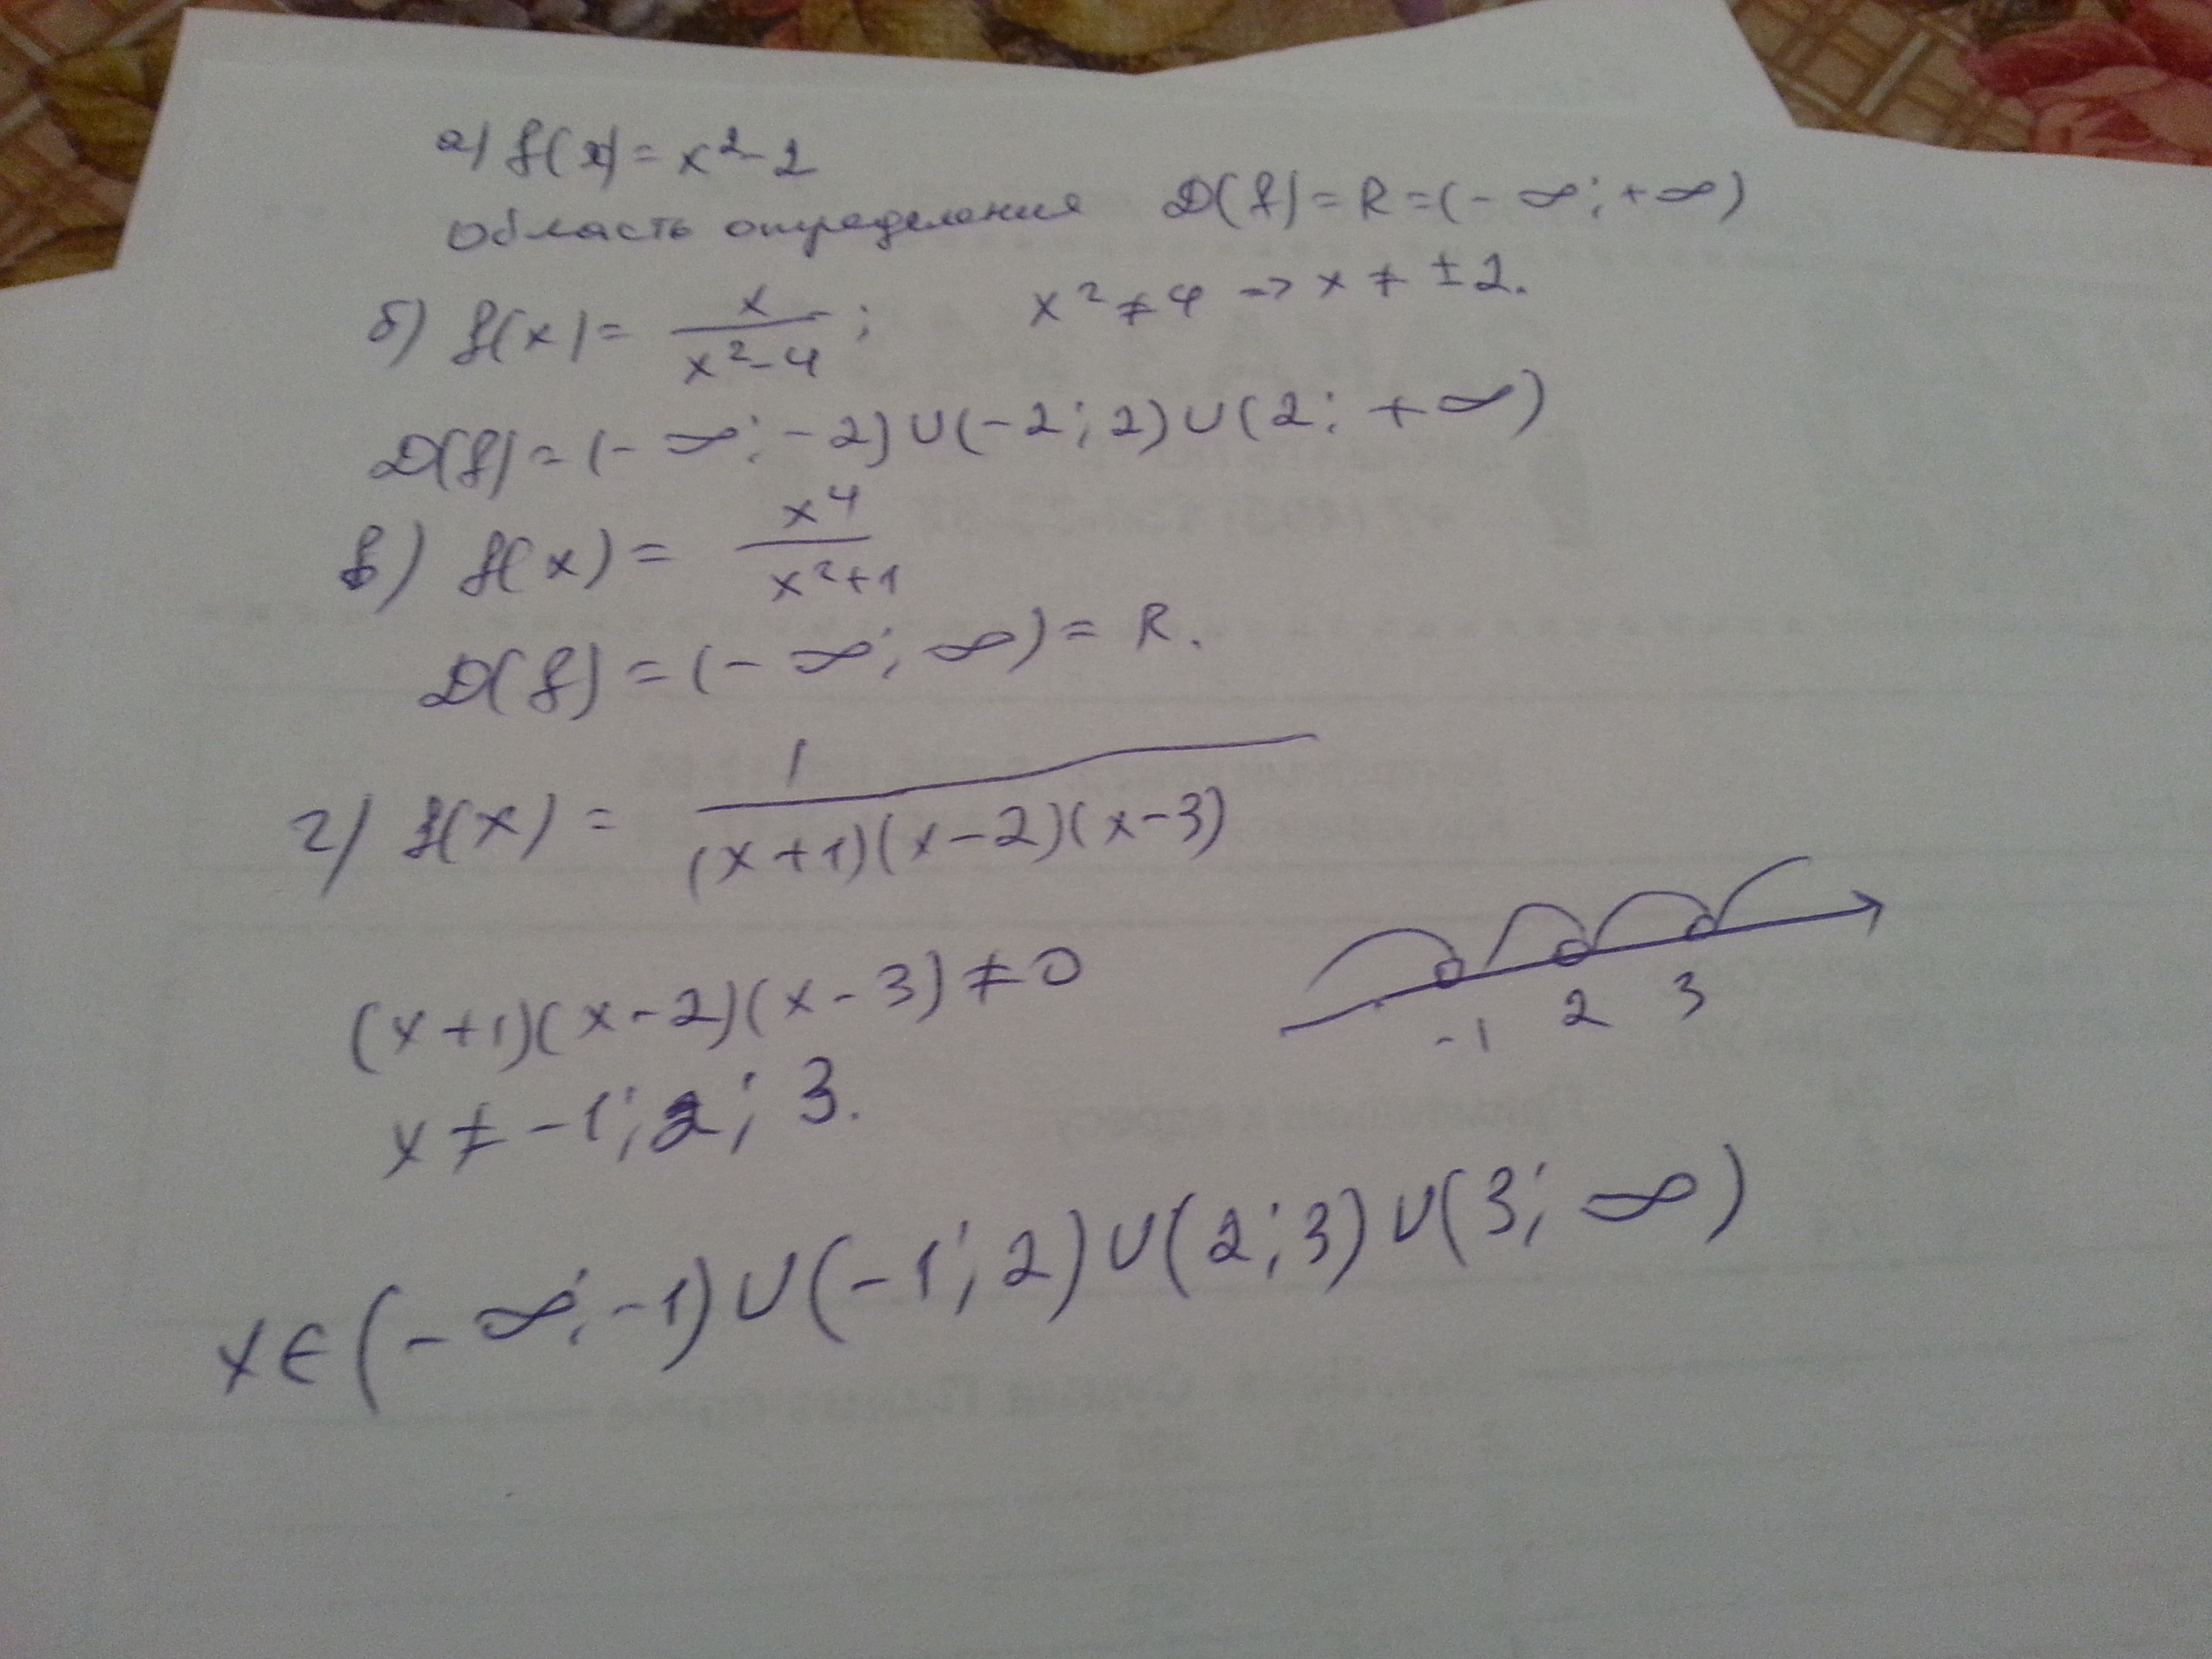 а) f(x) = x² - 2
Область определения D(f) = R = (- ∞; + ∞)
б) f(x) = x / (x² - 4); x² ≠ 4 => x ≠ ± 2.
D(f) = (- ∞; - 2) ∪ (- 2; 2) ∪ (2; + ∞)
в) f(x) = x⁴ / (x² + 1)
D(f) = (- ∞; ∞) = R.
г) f(x) = 1 / ((x + 1)(x - 2)(x - 3))
(x + 1)(x - 2)(x - 3) ≠ 0
-1 2 3
x ≠ - 1; 2; 3.
x ∈ (- ∞; - 1) ∪ (- 1; 2) ∪ (2; 3) ∪ (3; ∞)